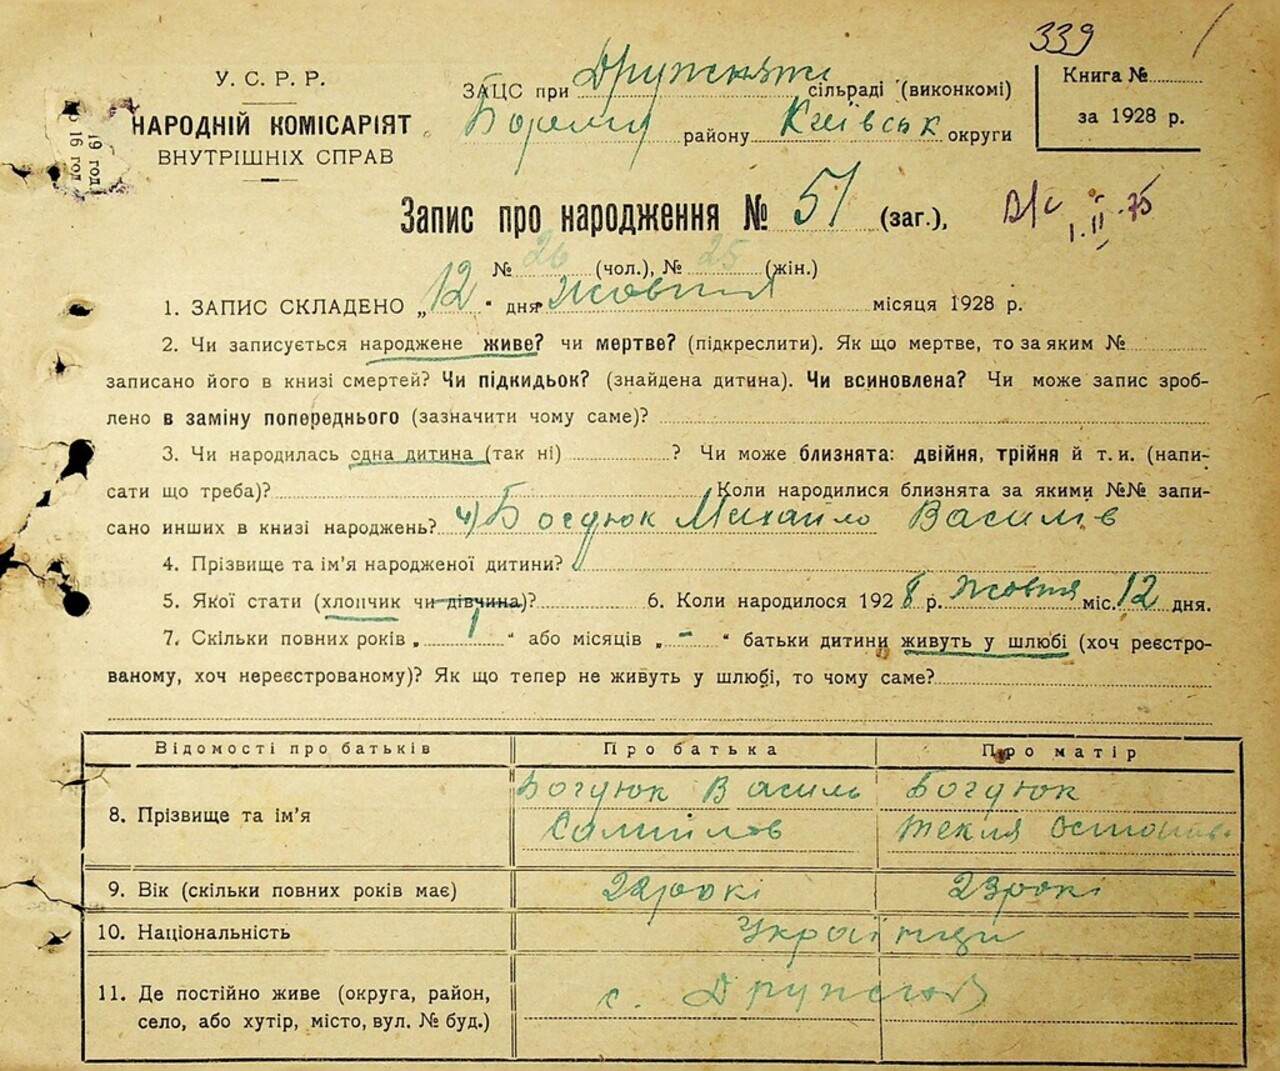 339
У. С. Р. Р.
НАРОДНІЙ КОМІСАРІЯТ
ВНУТРІШНІХ СПРАВ
19 год
16 год
ЗАЦС при сільраді (виконкомі)
району Київськ округи
Книга №
за 1928 р.
Запис про народження № 51 (заг.),
I. II. 75
№ 26 (чол.), № 25 (жін.)
1. ЗАПИС СКЛАДЕНО „12" дня Жовтня місяця 1928 р.
2. Чи записується народжене живе? чи мертве? (підкреслити). Як що мертве, то за яким №
записано його в книзі смертей? Чи підкидьок? (знайдена дитина). Чи всиновлена? Чи може запис зроб-
лено в заміну попереднього (зазначити чому саме)?
3. Чи народилась одна дитина (так ні) ? Чи може близнята: двійня, трійня й т. и. (напи-
сати що треба)? Коли народилися близнята за якими №№ запи-
сано инших в книзі народжень? 4) Богдюк Михайло Василів
4. Прізвище та ім'я народженої дитини?
5. Якої стати (хлопчик чи дівчина)? 6. Коли народилося 1928 р. Жовтня міс. 12 дня.
7. Скільки повних років „1" або місяців „-" батьки дитини живуть у шлюбі (хоч реєстро-
ваному, хоч нереєстрованому)? Як що тепер не живуть у шлюбі, то чому саме?
Відомості про батьків Про батька Про матір
8. Прізвище та ім'я Богдюк Василь Богдюк
Самійлов Текля
9. Вік (скільки повних років має) 22 рокі 23 рокі
10. Національність Українци
11. Де постійно живе (округа, район,
село, або хутір, місто, вул. № буд.) с.